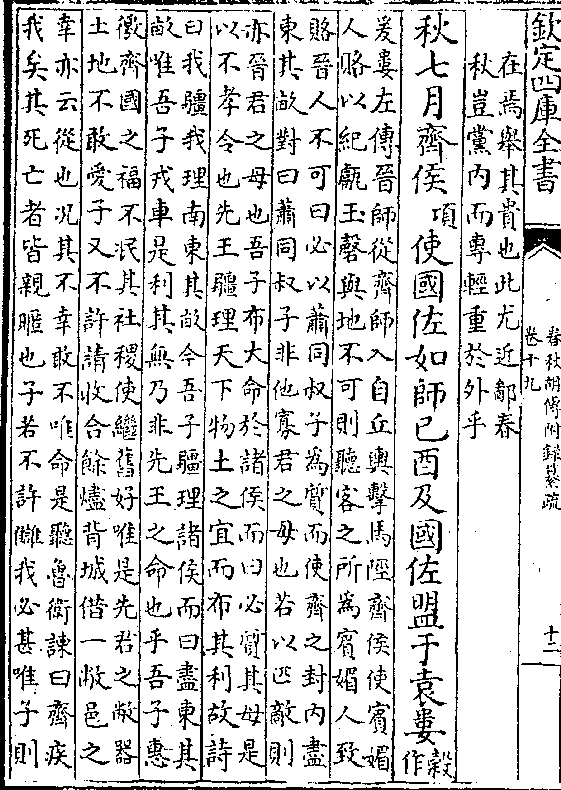 欽定四庫全書
春秋胡傳附録纂疏
卷十九
十二
在焉舉其貴也此尤近鄙春
秋豈黨内而專輕重於外乎
秋七月齊侯項使國佐如師已酉及國佐盟于袁婁榖作
爰婁左傳晉師從齊師入自丘輿擊馬陘齊侯使賓媚
人賂以紀甗玉磬與地不可則聽客之所為賓媚人致
賂晉人不可曰必以蕭同叔子為質而使齊之封内盡
東其畝對曰蕭同叔子非他寡君之母也若以匹敵則
亦晉君之母也吾子布大命於諸侯而曰必質其母是
以不孝令也先王疆理天下物土之宜而布其利故詩
曰我疆我理南東其畝今吾子疆理諸侯而曰盡東其
畝唯吾子戎車是利其無乃非先王之命也乎吾子惠
徼齊國之福不泯其社稷使繼舊好唯是先君之敝器
土地不敢愛子又不許請收合餘燼背城借一敝邑之
幸亦云從也況其不幸敢不唯命是聽魯衛諫曰齊疾
我矣其死亡者皆親暱也子若不許讎我必甚唯子則